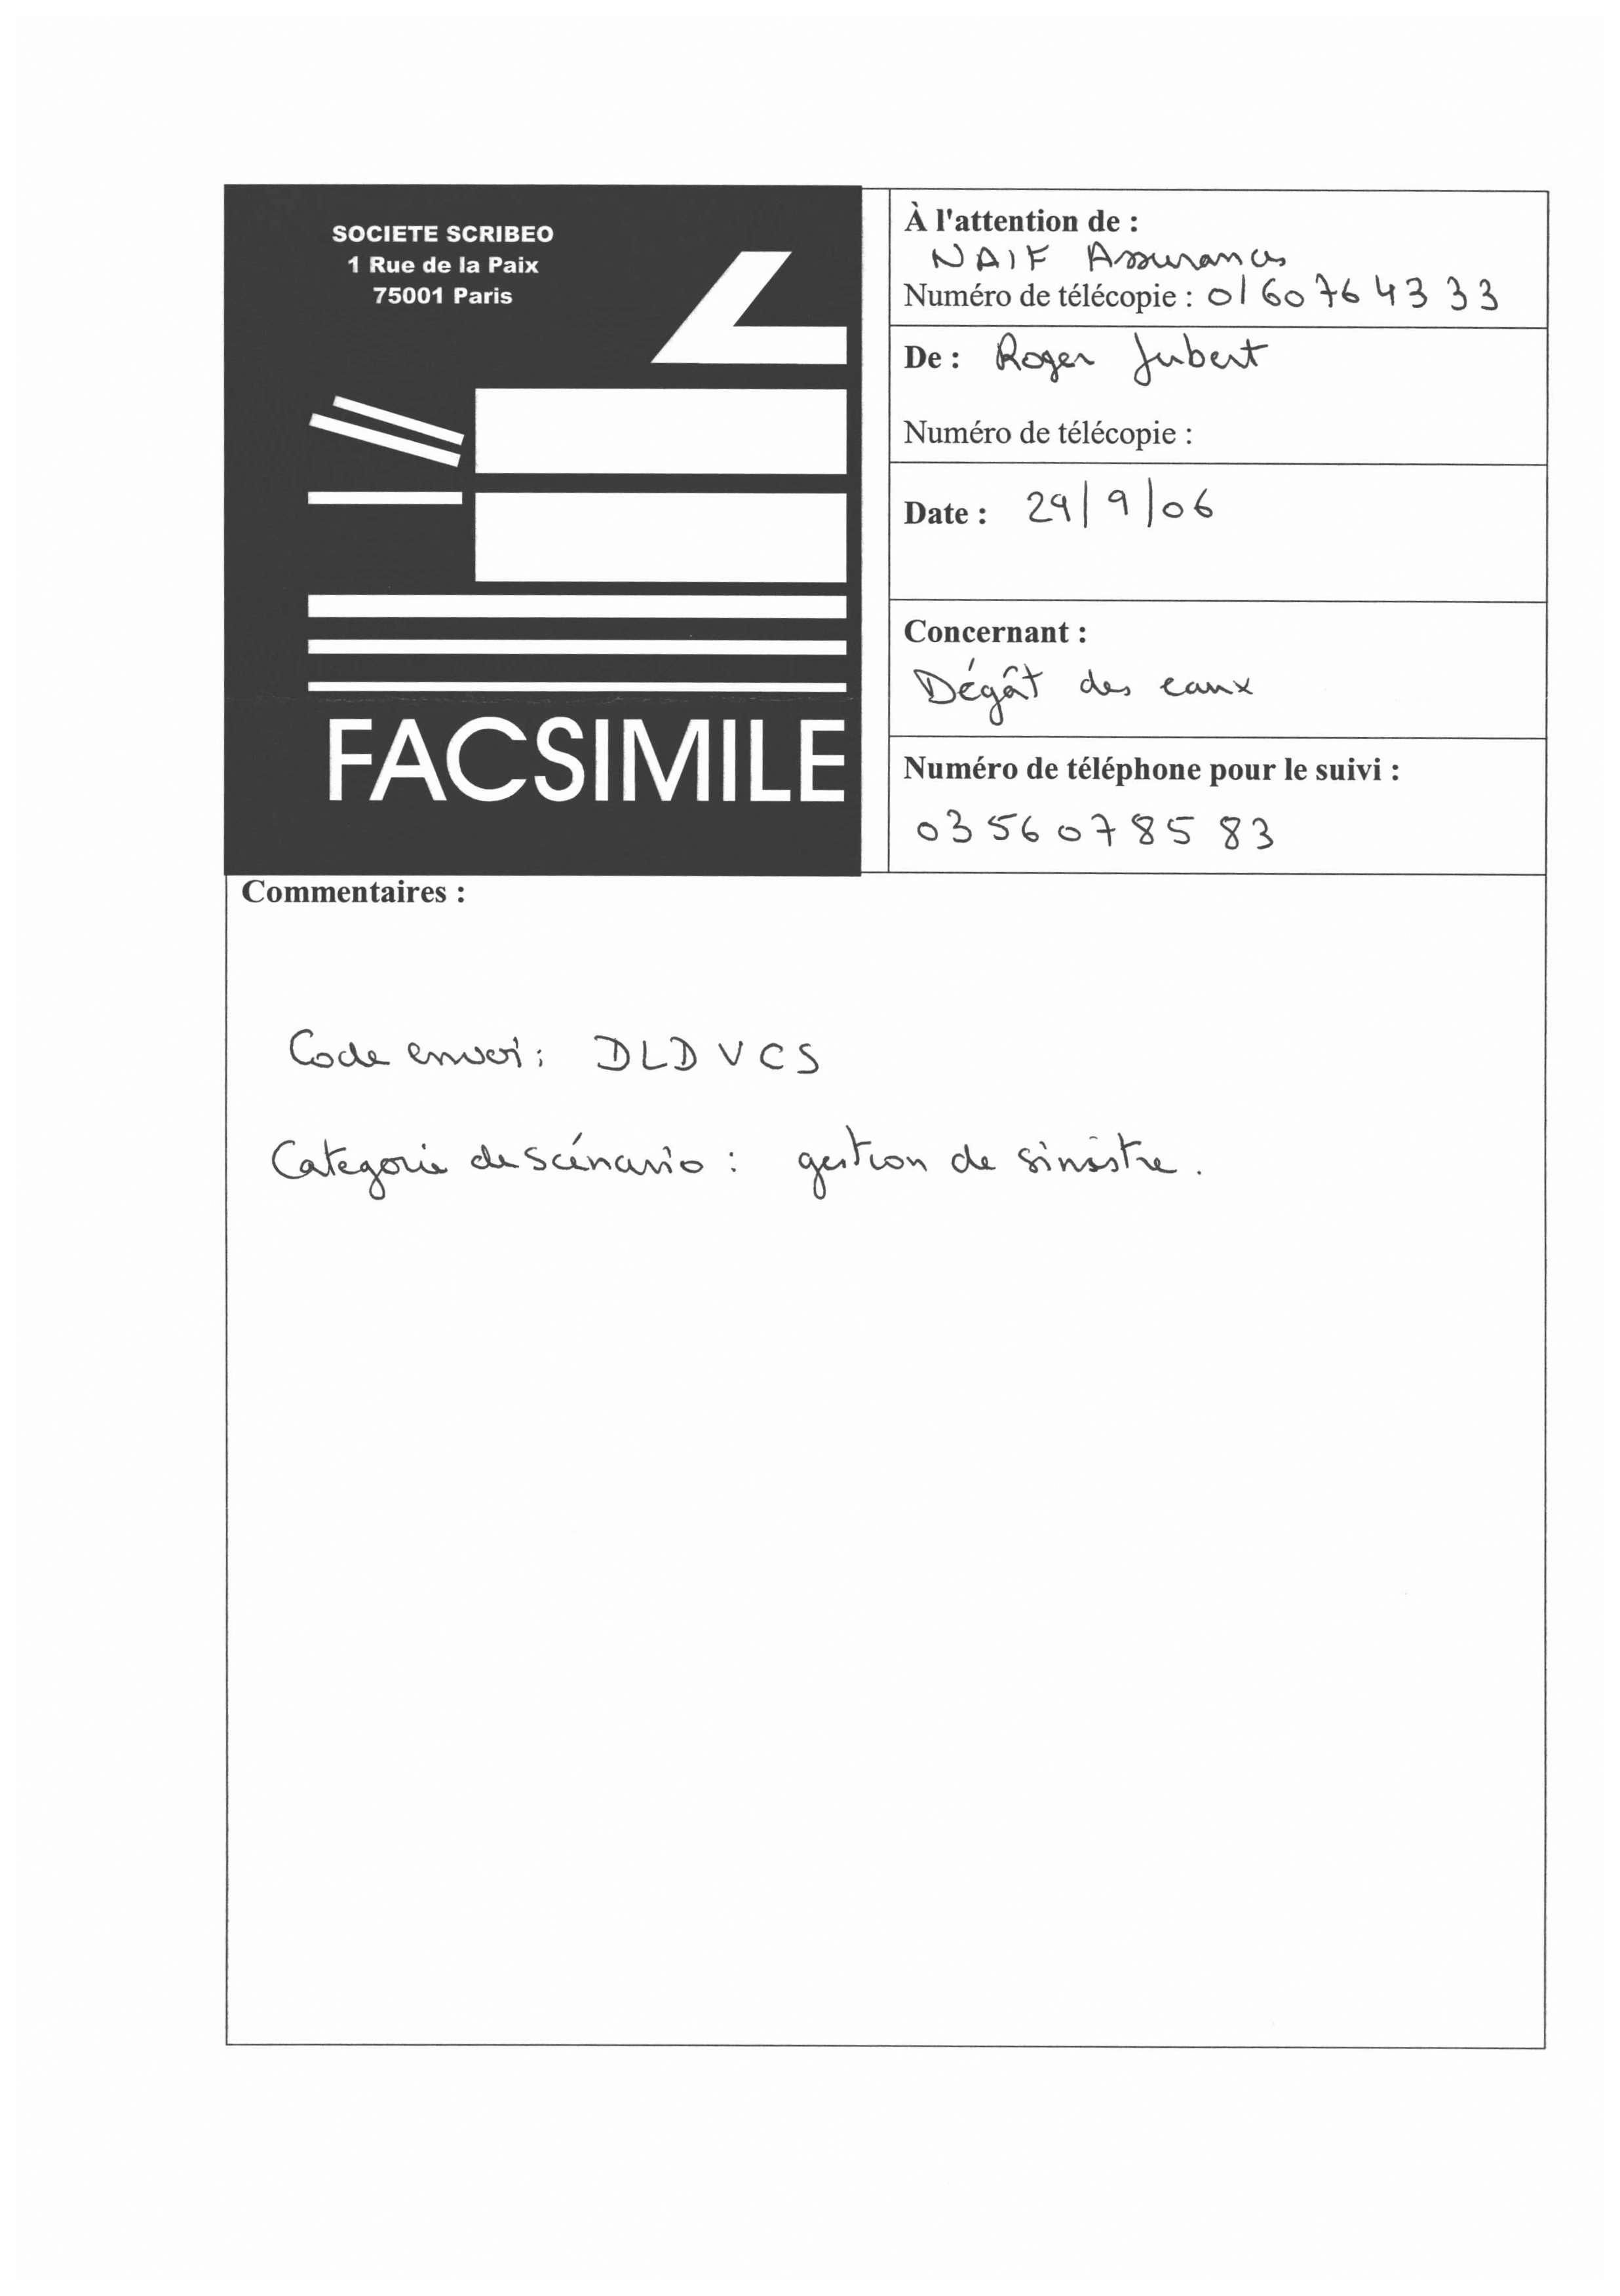 SOCIETE SCRIBEO
1 Rue de la Paix
75001 Paris
FACSIMILE
À l'attention de :
NAIF Assurances
Numéro de télécopie : 01 60 76 43 33
De : Roger Jubert
Numéro de télécopie :
Date : 29/9/06
Concernant :
Dégât des eaux
Numéro de téléphone pour le suivi :
03 56 07 85 83
Commentaires :
Code envoi : DLDVCS
Categorie de scénario : gestion de sinistre.